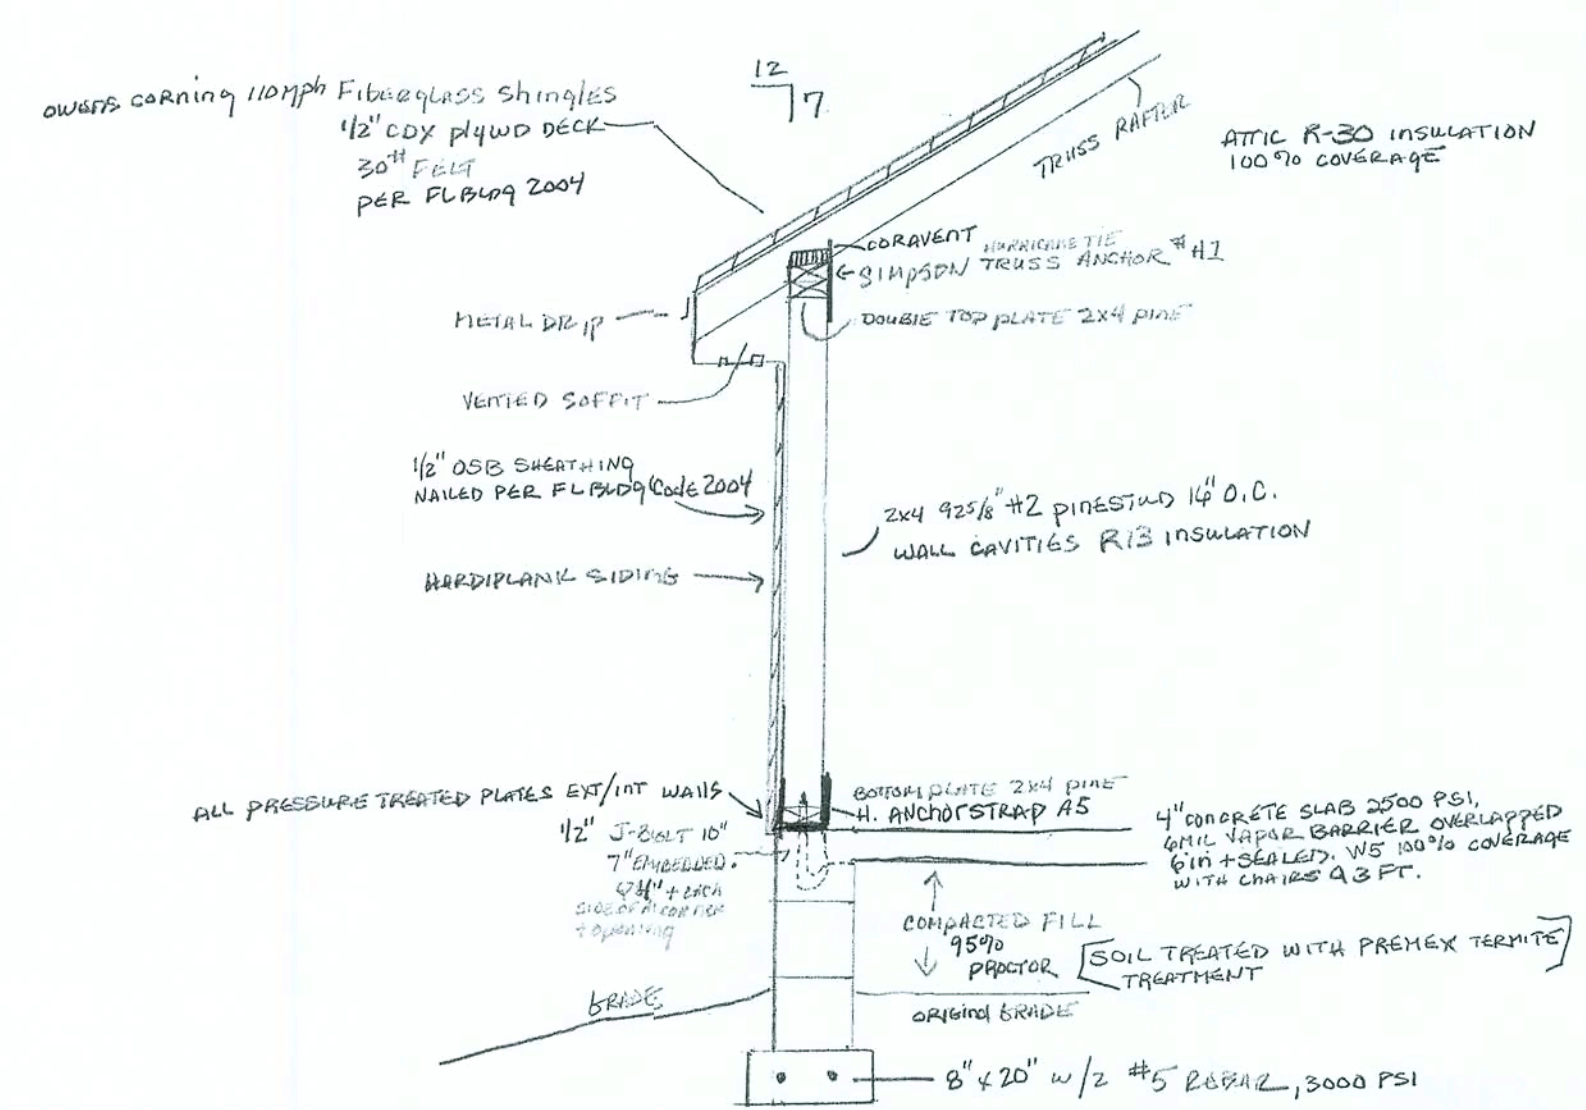 12
7
OWENS CORNING 110 MPH FIBERGLASS SHINGLES
1/2" CDX PLYWD DECK
30# FELT
PER FL BLDG 2004
TRUSS RAFTER
ATTIC R-30 INSULATION
100% COVERAGE
CORAVENT
HURRICANE TIE
SIMPSON TRUSS ANCHOR # H1
METAL DRIP
DOUBLE TOP PLATE 2x4 PINE
VENTED SOFFIT
1/2" OSB SHEATHING
NAILED PER FL BLDG CODE 2004
2x4 92 5/8" #2 PINE STUD 16" O.C.
WALL CAVITIES R13 INSULATION
HARDIPLANK SIDING
ALL PRESSURE TREATED PLATES EXT/INT WALLS
BOTTOM PLATE 2x4 PINE
H. ANCHOR STRAP A5
1/2" J-BOLT 10"
7" EMBEDDED.
+ EACH
SIDE OF CORNER
+ OPENING
4" CONCRETE SLAB 2500 PSI,
6 MIL VAPOR BARRIER OVERLAPPED
6 in + SEALED. W5 100% COVERAGE
WITH CHAIRS @ 3 FT.
COMPACTED FILL
95%
PROCTOR
[SOIL TREATED WITH PREMEX TERMITE
TREATMENT]
GRADE
ORIGINAL GRADE
8" x 20" w/2 #5 REBAR, 3000 PSI